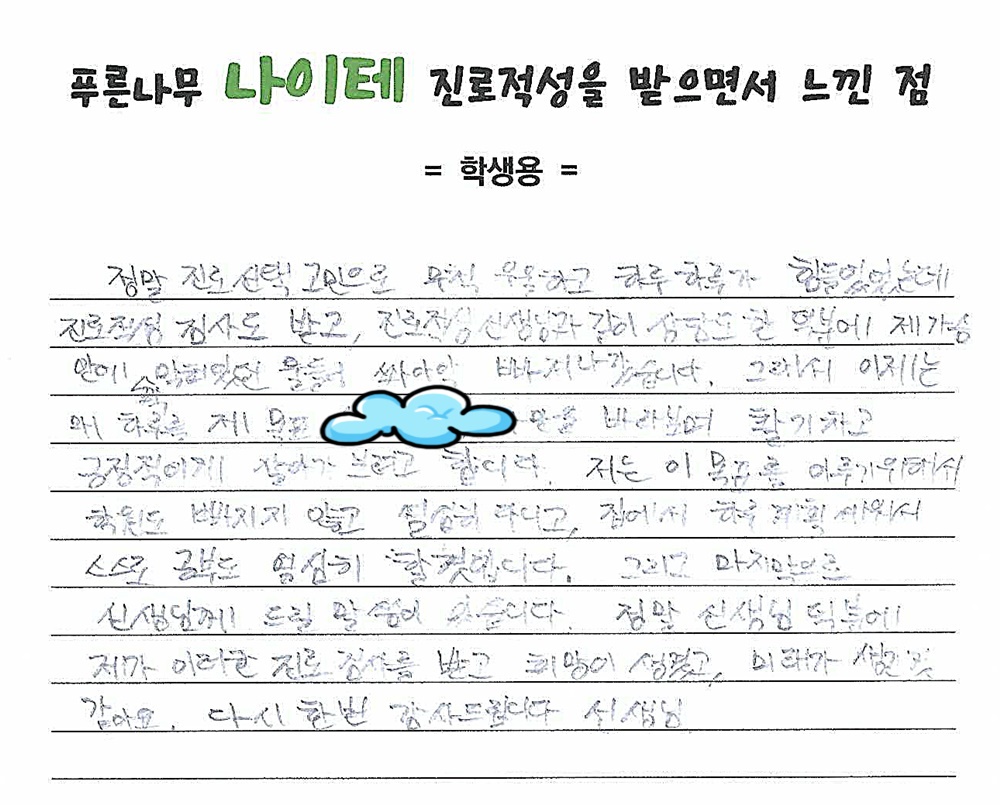 푸른나무 나이테 진로적성을 받으면서 느낀 점
= 학생용 =
정말 진로선택 고민으로 무척 우울하고 하루하루가 힘들었었는데
진로적성 검사도 받고, 진로적성 선생님과 같이 상담도 한 덕분에 제 가슴
안에 막혀있던 쏴아악 빠져나갔습니다. 그래서 이제는
하루를 제 목표 만을 바라보며 활기차고
긍정적이게 살아가 보려고 합니다. 저는 이 목표를 이루기위해서
학원도 빠지지 않고 열심히 다니고, 집에서 하루 계획 세워서
스스로 공부도 열심히 할것입니다. 그리고 마지막으로
선생님께 드릴 말씀이 있습니다. 정말 선생님 덕분에
제가 이러한 진로 검사를 받고 희망이 생겼고, 미래가 생긴 것
같아요. 다시 한번 감사드립니다 선생님